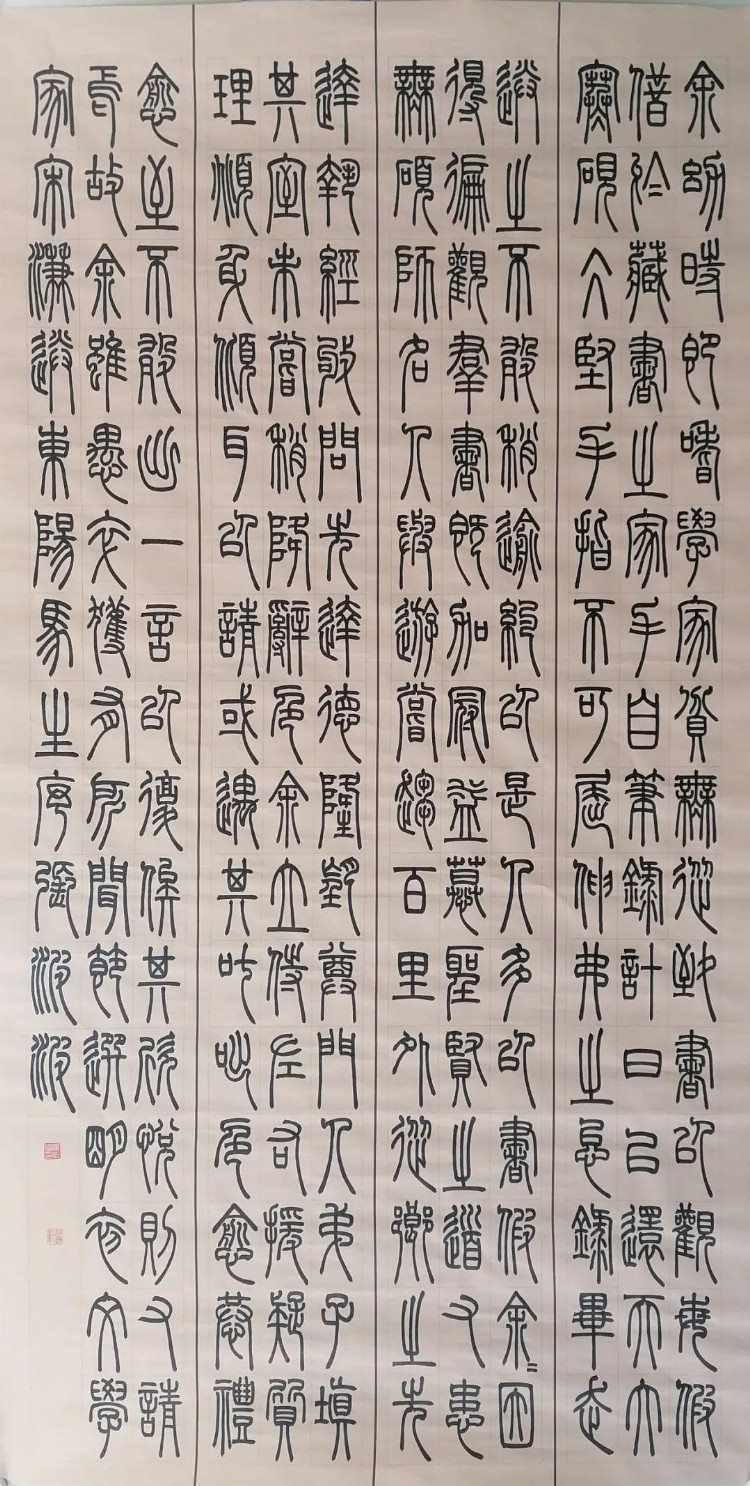 余幼時即嗜學家貧無從致書以觀每假
借於藏書之家手自筆錄計日以還天大
寒硯冰堅手指不可屈伸弗之怠錄畢走
送之不敢稍逾約以是人多以書假余〻因
得徧觀羣書既加冠益慕聖賢之道又患
無碩師名人與遊嘗趨百里外從鄉之先
達執經叩問先達德隆望尊門人弟子填
其室未嘗稍降辭色余立侍左右援疑質
理俯身傾耳以請或遇其叱咄色愈恭禮
愈至不敢出一言以復俟其欣悅則又請
焉故余雖愚卒獲有所聞節選明初文學
家宋濂送東陽馬生序張